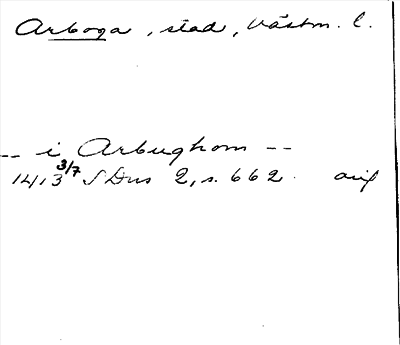 Arboga, stad, Västm. l.
-- i Arbughom --
1413 3/7 SDns 2, s. 662. avg